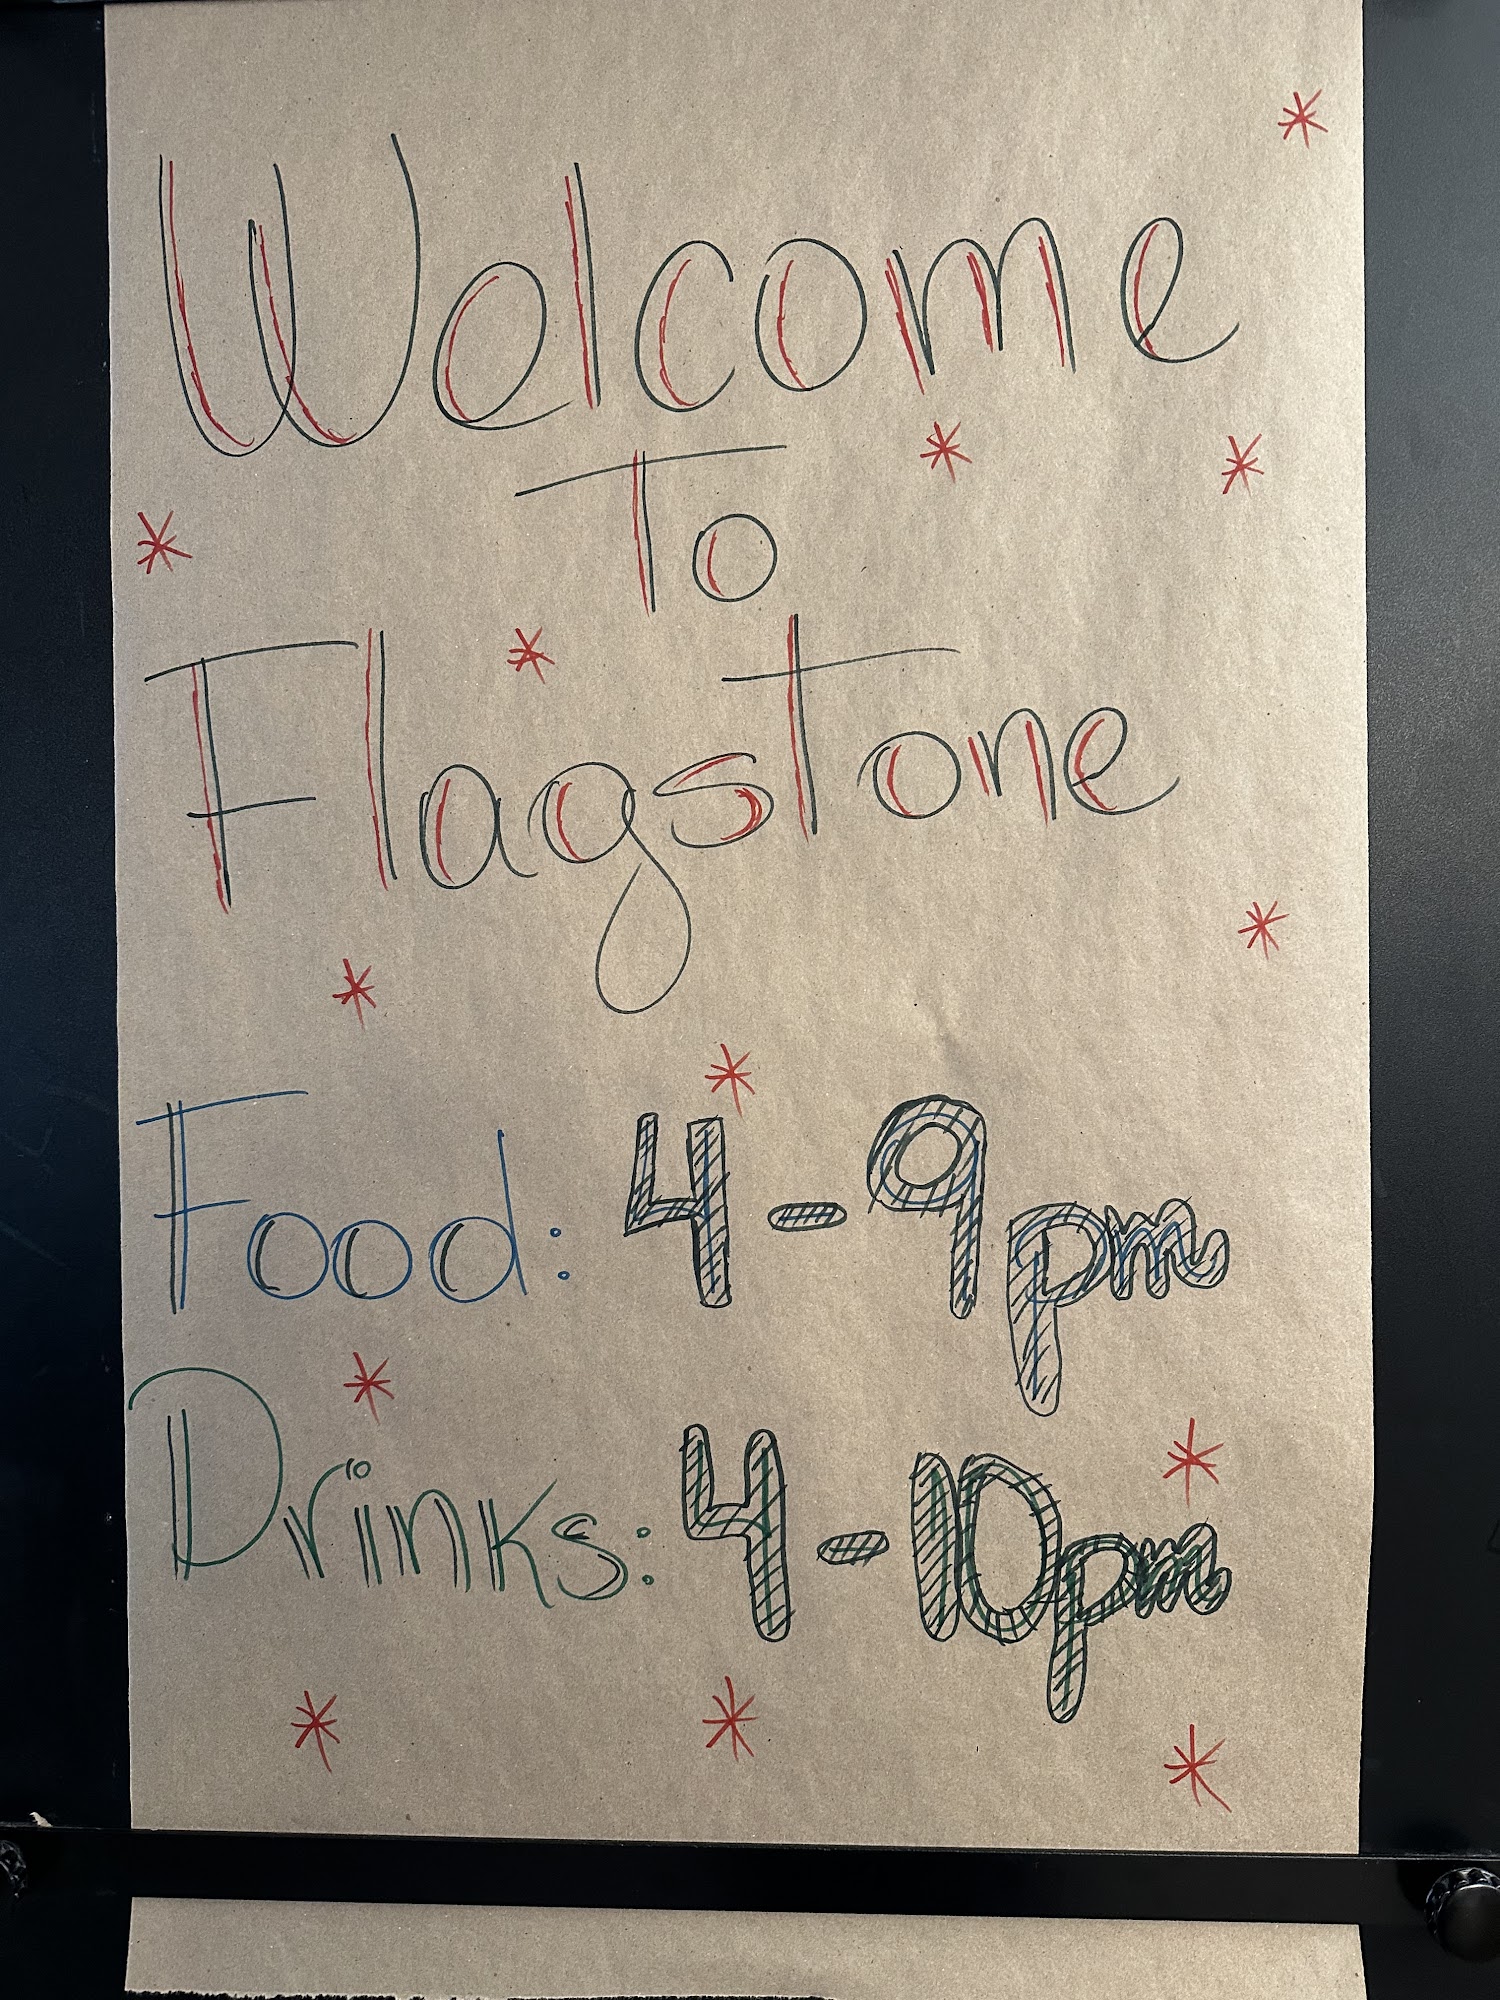 Welcome
To
Flagstone
Food: 4-9pm
Drinks: 4-10pm